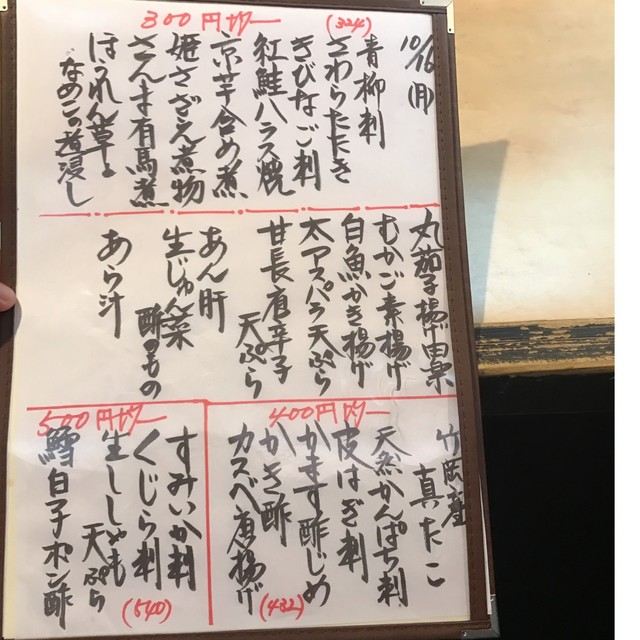 10/16(月)
300円均一
(324)
青柳刺
さわらたたき
きびなご刺
紅鮭ハラス焼
京芋含め煮
姫さざえ煮物
さんま有馬煮
ほうれん草と
なめこの煮浸し
丸茄子揚げ出し
むかご素揚げ
白魚かき揚げ
太アスパラ天ぷら
甘長唐辛子
天ぷら
あん肝
生じゅん菜
酢のもの
あら汁
400円均一
竹岡産
真たこ
天然かんぱち刺
皮はぎ刺
かます酢じめ
かき酢
カスベ唐揚げ
(432)
500円均一
すみいか刺
くじら刺
生ししゃも
天ぷら
鱈白子ポン酢
(540)